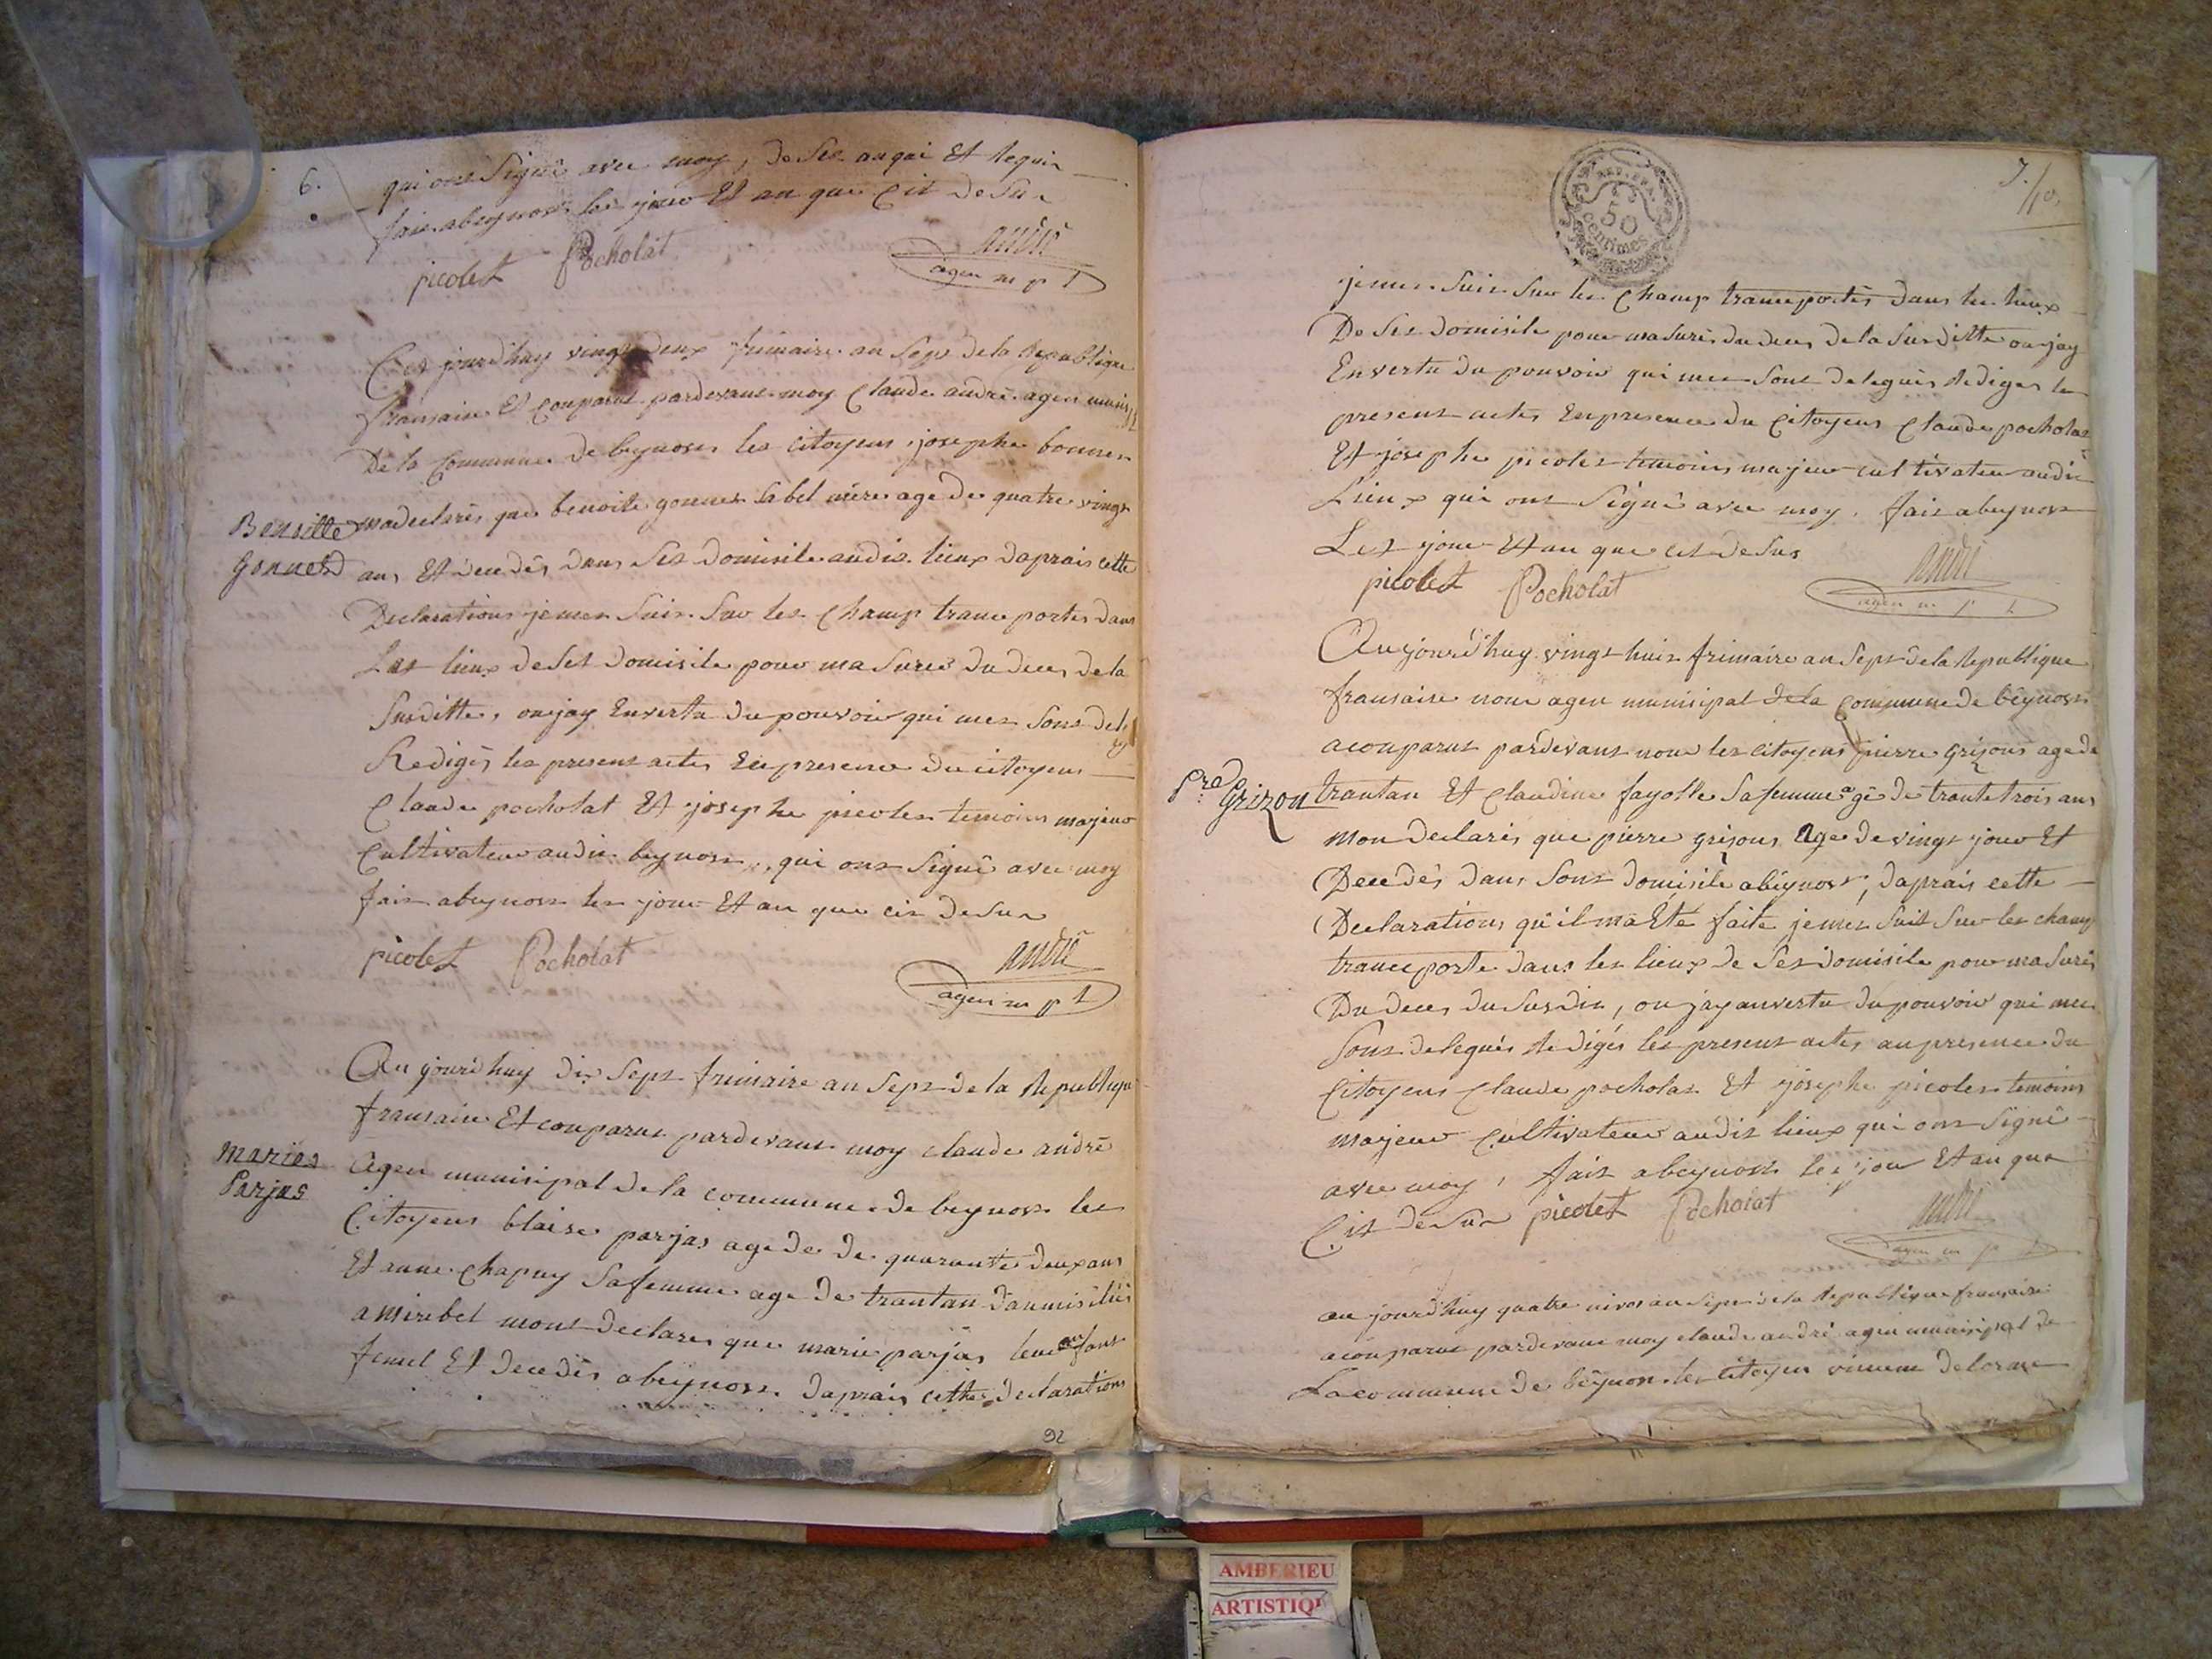 6.
qui ont Signé avec moy, de Ses anqui Et Requir
fait abeynost les jour Et an que Cit desur
picolet Pocholat andré
agen m p l
Cet jourdhuy vingt deux frimaire an Sept de la Republique
fransaise Et Conparut pardevant moy Claude andré agen munis
De la Commune de beynost les Citoyens josephe bonnet
Benoitte
Gonnet
madeclarés que benoite gonnet Sa bel mére age de quatre vingt
ans Et decedés dans Ses domisile audit lieux daprais cette
Declarations jemes Suis Sur les Champ trancportes dans
Les lieux deSes domisile pour maSurer du deces de la
Susditte, oujay Envertu du pouvoir qui mes Sont deleg
Redigés les present actes Enpresence du citoyens
Claude pocholat Et josephe picolet temoins majeur
Cultivateur audit beynost, qui ont Signé avec moy
fait abeynost les jour Et an que cit deSur
picolet Pocholat andré
agen m p l
Aujourdhuy dix Sept frimaire an Sept de la Republique
fransaise Et conparut pardevant moy claude andré
Maries
Parjas
Agen munisipal de la commune de beynost les
Citoyens blaise parjas age de de quarante deux ans
Et anne Chapuy Safemme age de trantan daumisiliés
amirebel mont declares que marie parjas leur anfant
femel Et decedés abeynost daprais cettes declarations
92
7./10.
REP. FRA.
50
centimes
jemes Suis Sur les Champ trancportés dans les lieux
De Ses domisile pour maSurés du deces de la Susditte oujay
Envertu du pouvoir qui mes Sont delegués Rediges les
present actes Enpresence du Citoyens Claude pocholat
Et josephe picolet temoins majeur cultivateur audit
Lieux qui ont Signé avec moy, fait abeynost
Les jour Et an que cit deSus
picolet Pocholat andré
agen m p l
Aujourdhuy vingt huit frimaire an Sept dela Republique
fransaise nous agen munisipal dela Commune de beynost
aconparut pardevant nous les citoyens pierre grizons age de
Pre
Grizon
trantan Et Claudine fayolle Safemme agé de trante trois ans
mon declarés que pierre grisons age de vingt jour Et
Decedés dans Sont domisile abeynost, daprais cette
Declarations qu'il ma Eté faite jemes Suis Sur les champ
trancporte dans les lieux de Ses domisile pour maSurés
Du deces du Susdit, ou jay anvertu du pouvoir qui mes
Sont delegués Redigés les present actes anpresence du
Citoyens Claude pocholat Et josephe picolet temoins
majeur Cultivateur audit lieux qui ont Signé
avec moy, fait abeynost les jour Et an que
Cit desur picolet Pocholat andré
agen m p l
aujourdhuy quatre nivos an Sept dela Republique fransaise
aconparut pardevant moy claude andré agen munisipal de
La commune de beynost les citoyen vincent delorme
AMBERIEU
ARTISTIQU